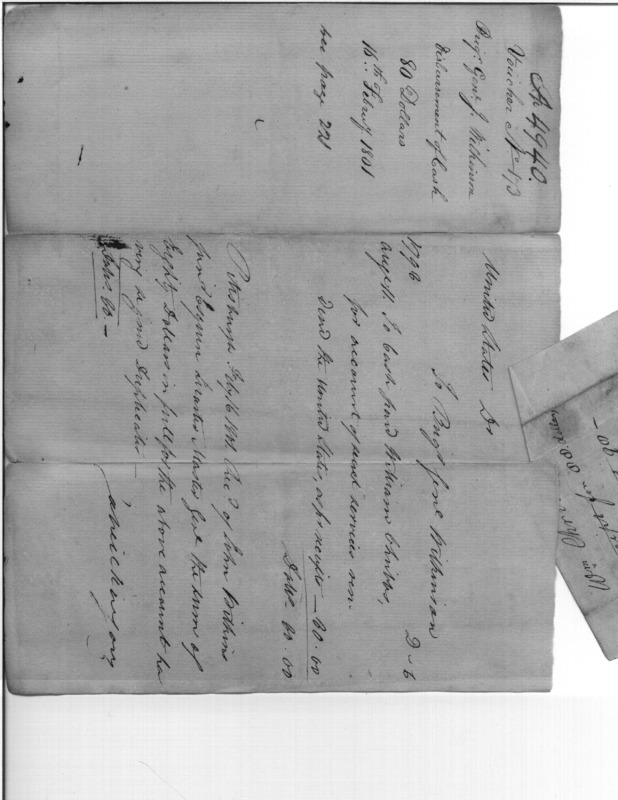 No 4940.
Voucher No 173
Brigr Genl J. Wilkinson
disbursement of Cash
80 Dollars
16th Februy 1801
see page 221
United States Dr
To Brigr Genl Wilkinson
1796
D c
August To Cash paid William Chribbs,
for account of secret services ren-
dered the United States, as pr receipt — 80.00
Dolls 80.00
Pittsburgh Feby 16 1801 Recd of John Wilkins
junr Esquire Quarter Master Genl the sum of
Eighty Dollars in full for the above account ha
ving signed Duplicates —
Dolls. 80. —
Wm
90 —